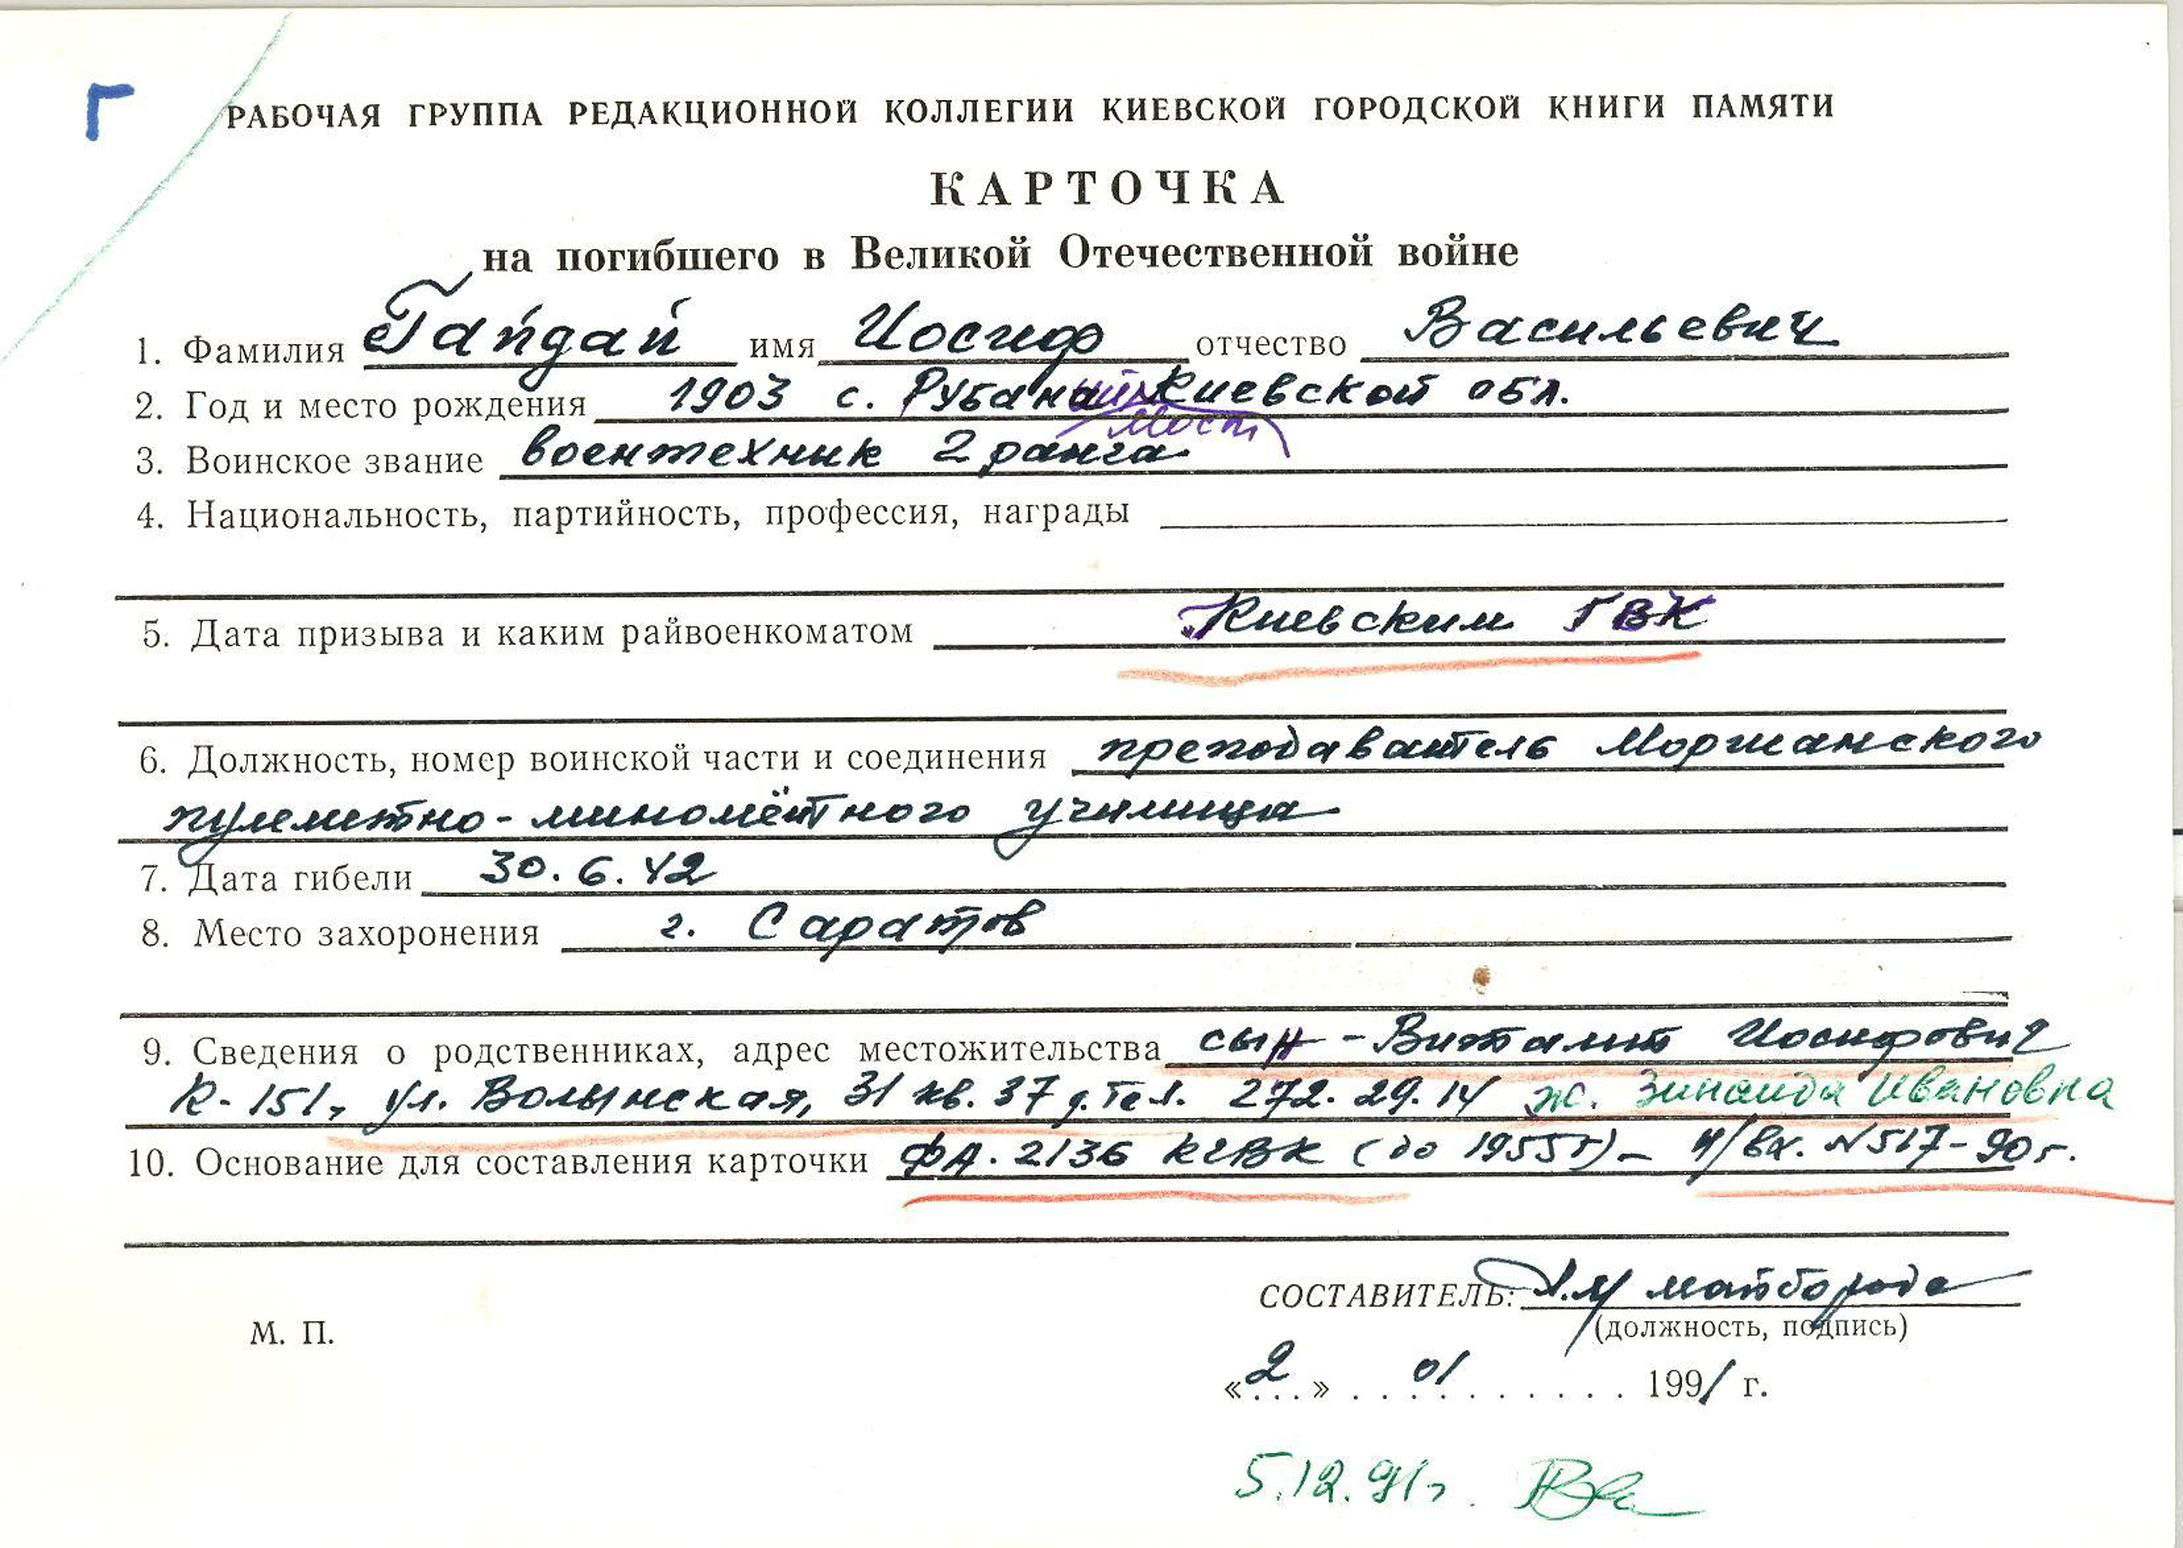 Г
РАБОЧАЯ ГРУППА РЕДАКЦИОННОЙ КОЛЛЕГИИ КИЕВСКОЙ ГОРОДСКОЙ КНИГИ ПАМЯТИ
КАРТОЧКА
на погибшего в Великой Отечественной войне
1. Фамилия Гайдай имя Иосиф отчество Васильевич
2. Год и место рождения 1903 с. Рубаный Киевской обл.
Мост
3. Воинское звание воентехник 2 ранга
4. Национальность, партийность, профессия, награды
5. Дата призыва и каким райвоенкоматом Киевским ГВК
6. Должность, номер воинской части и соединения преподаватель Моршанского
пулеметно-миномётного училища
7. Дата гибели 30.6.42
8. Место захоронения г. Саратов
9. Сведения о родственниках, адрес местожительства сын - Виталий Иосифович
К-151, ул. Волынская, 31 кв. 37 д.тел. 272.29.14 ж. Зинаида Ивановна
10. Основание для составления карточки ФА. 2136 КГВК (до 1955г) - И/вх. №517-90г.
СОСТАВИТЕЛЬ: майборода
(должность, подпись)
М. П.
«2» 01 1991 г.
5.12.91г.